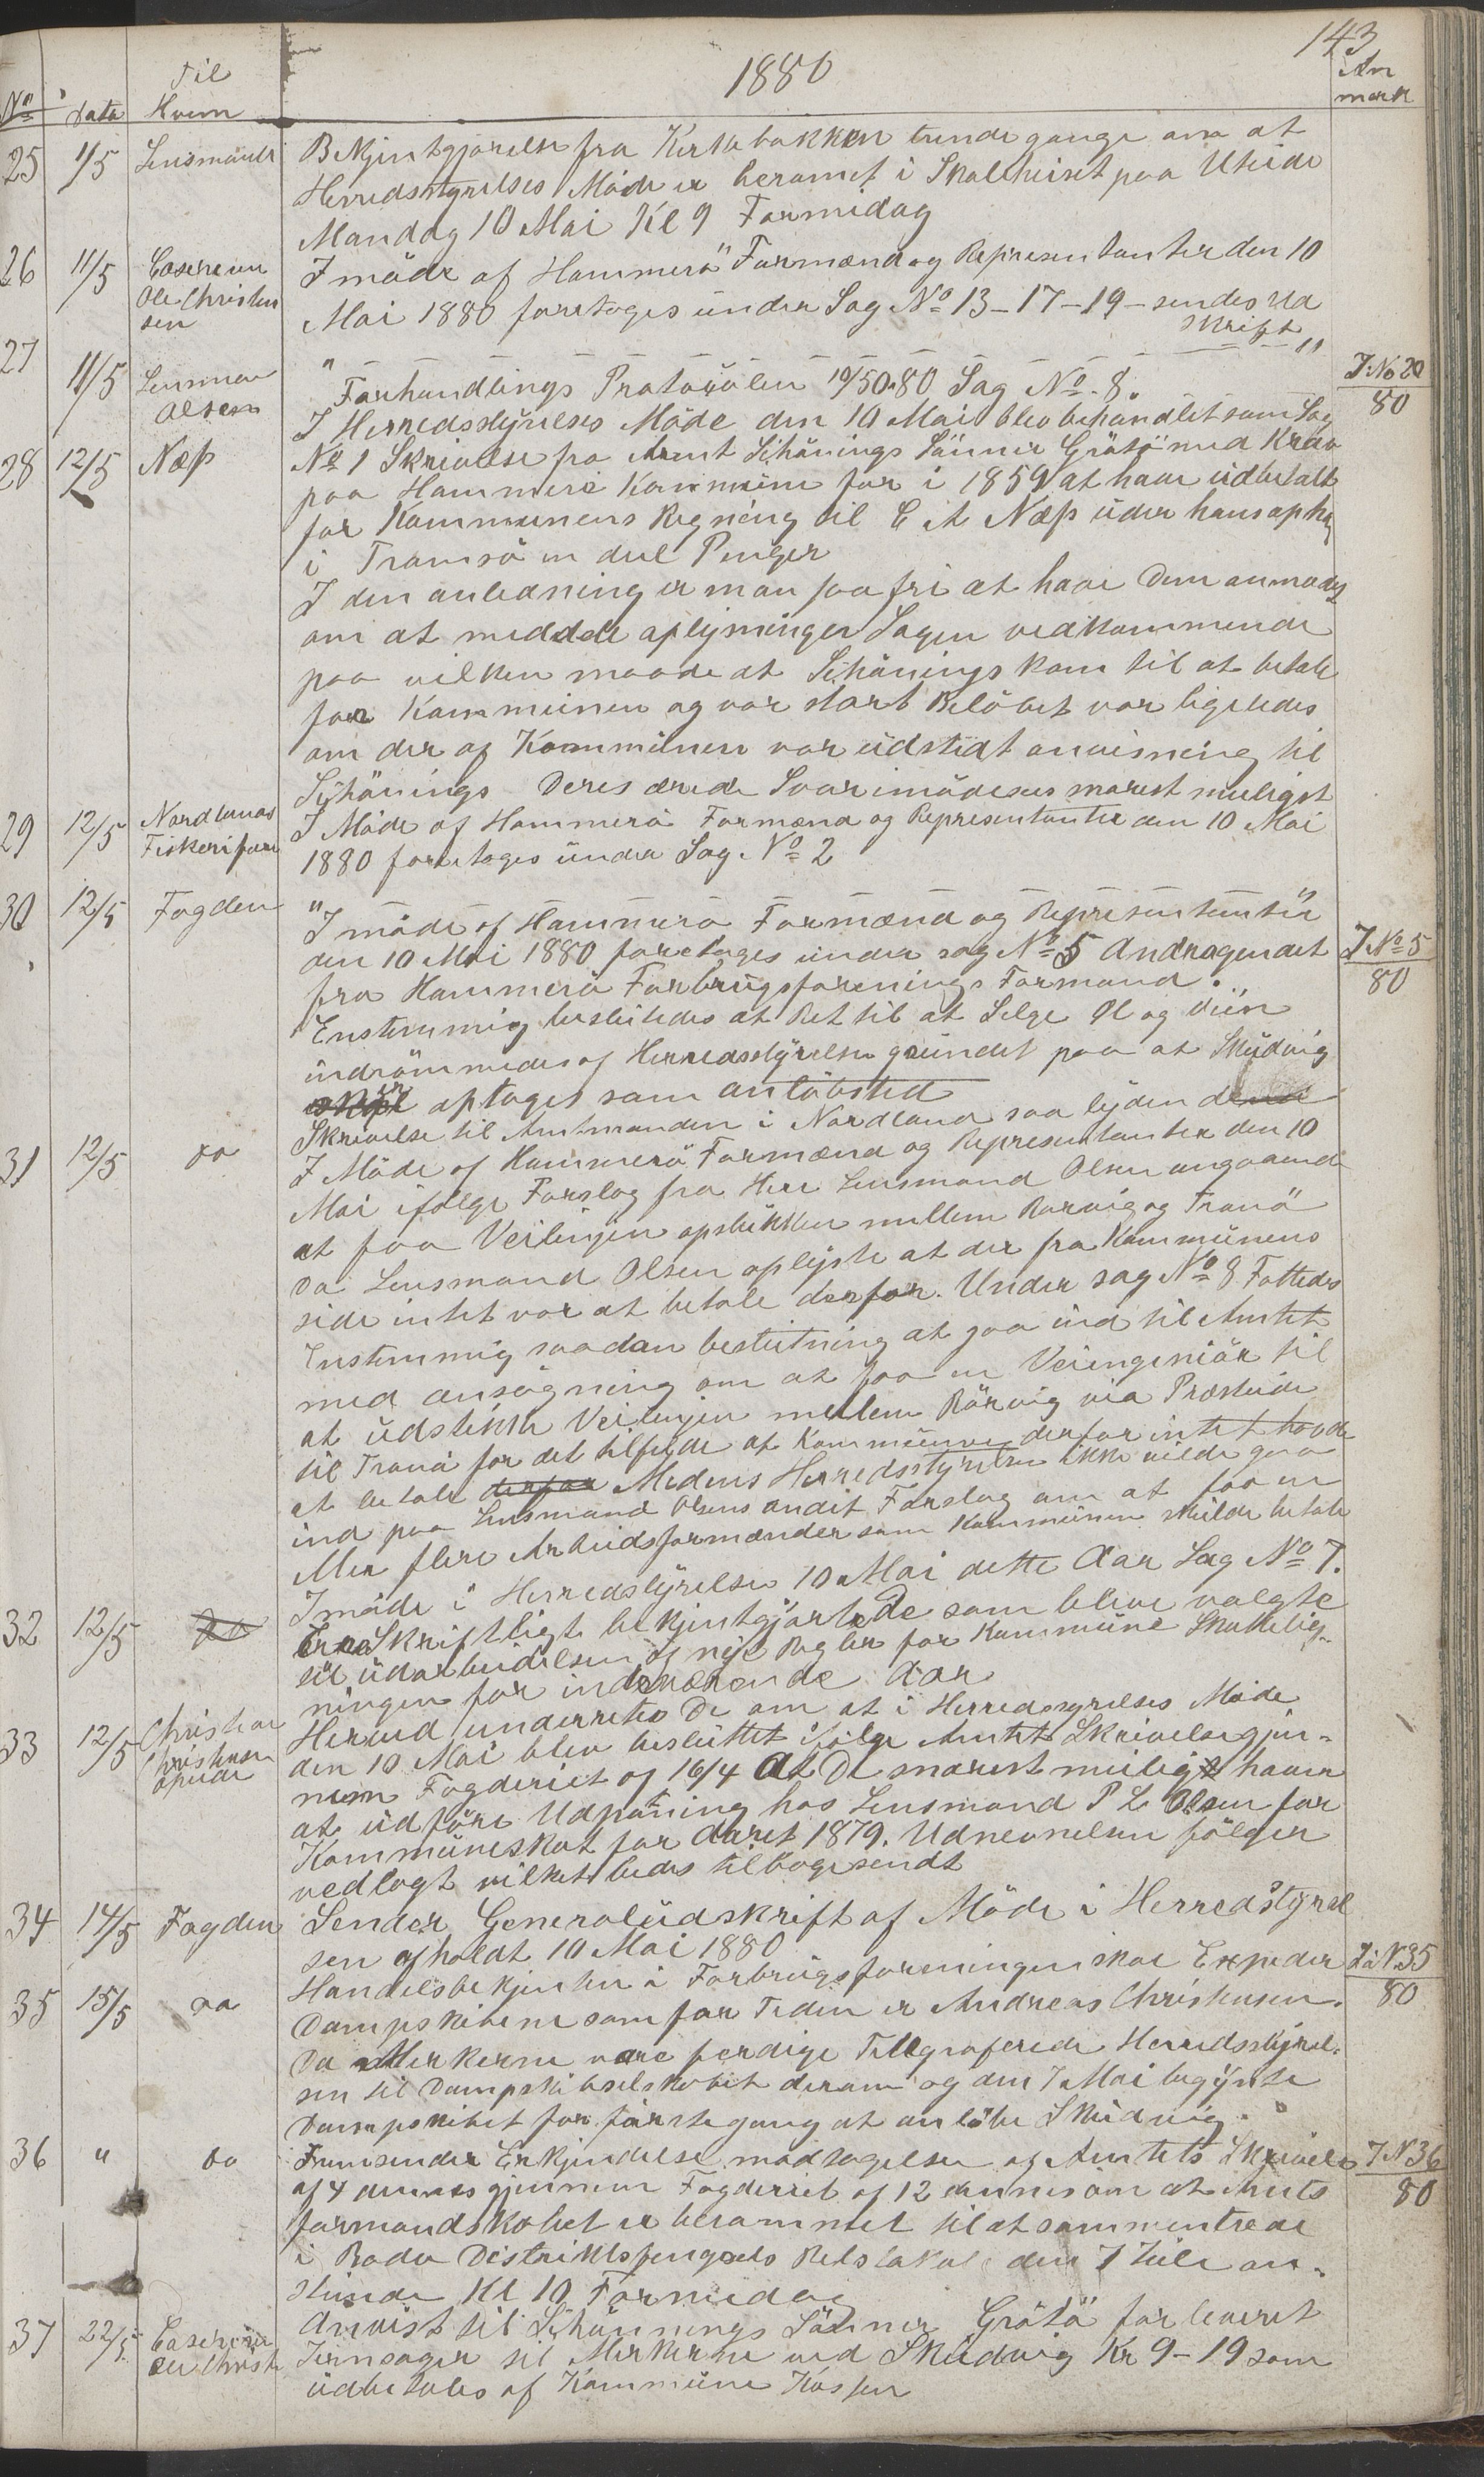 143
1880
Til
An
mærk
No Dato Hvem
25 1/5 Lensmand Bekjentgjörelse fra Kirkebakken trende gange om at
Herredsstyrelses Möde er beramet i Skolehuset paa Uteide
Mandag 10 Mai Kl 9 Formidag
26 11/5 Caserer Ole Christensen I möde af Hammerö Formænd og Representanter den 10
Mai 1880 foretoges under Sag No 13-17-19- sendes Ud
skrift
27 11/5 Lensman Olsen " Forhandlings Protocolen 10/5 80 Sag No 8. J No 20/80
28 12/5 Næss I Herredsstyrelses Möde den 10 Mai blev behandlet som Sag
No 1 Skrivelse fra Arent Schönings Sönner Grötö med Krav
paa Hammerö Kommune for i 1859 at have udbetalt
for Kommunens Regning til C A Næss under hans ophold
i Tromsö en deel Penger
I den anledning er man saa fri at have Dem anmodet
om at meddele oplysninger Sagen vedkommende
paa vilken maade at Schönings kom til at betale
for Kommunen og vor stort Belöbet var ligeledes
om der af Kommunen var udstedt anvisning til
Schönings Deres ærede Svar imödesees snarest muligst
29 12/5 Nordlands Fiskerifore I Möde af Hammerö Formænd og Representanter den 10 Mai
1880 foretoges under Sag No 2
30 12/5 Fogden " I möde af Hammerö Formænd og Representanter
den 10 Mai 1880 foretoges under sag No 5 Andragendet J No 5/80
fra Hammerö Forbrugsforenings Formand.
Enstemmig besluttedes at Ret til at Selge Öl og Viin
indrömmedes af Herredsstyrelsen grundet paa at Skudvig
optages som anlöbsted
31 12/5 do Skrivelse til Amtmanden i Nordland saa lydende
I Möde af Hammerö Formænd og Representanter den 10
Mai ifölge Forslag fra Herr Lensmand Olsen angaaende
at faa Veilinjen opstukken mellem Rörvig og Tranö
Da Lensmand Olsen oplyste at der fra Kommunens
side intet var at betale derfor. Under sag No 8 Fattedes
Enstemmig saadan beslutning at gaa ind til Amtet
med ansögning om at faa en Veiingeniör til
at udstikke Veilinjen mellem Rörvig via Presteide
til Tranö for det tilfelde at Kommunen derfor intet havde
at betale derfor Medens Herredsstyrelsen ikke vilde gaa
ind paa Lensmand Olsens andet Forslag om at faa en
eller flere Arbeidsformænder som Kommunen skulde betale
32 12/5 do I möde i Herredsstyrelsen 10 Mai dette Aar Sag No 7.
Skriftligt bekjentgjort De som bleve valgte
til udarbeidelsen af nye Regler for Kommune Skattelig-
ningen for indeværende Aar
33 12/5 Christian Christensen Herved underrettes De om at i Herredsstyrelses Möde
den 10 Mai blev besluttet ifölge Amtets Skrivelse gjen-
nem Fogderiet af 16/4 At De snarest muligt haver
at udföre Udpanting hos Lensmand P L Olsen for
Kommuneskat for Aaret 1879. Udnevnelsen fölger
vedlagt vilket bedes tilbagesendt
34 14/5 Fogden Sender Generaludskrift af Möde i Herredsstyrel
sen afholdt 10 Mai 1880
35 15/5 do Handelsbetjenten i Forbrugsforeningen skal Expeder J No 35/80
Dampskibene som for Tiden er Andreas Christensen.
Da Merkerne vare ferdige Telegraferede Herredsstyrel-
sen til Dampskibselskabet derom og den 7 Mai begynte
Dampskibet for förste gang at anlöbe Skudvig.
36 " do Fremsender Erkjendelse modtagelsen af Amtets Skrivelse J No 36/80
af 4 dennes gjennem Fogderiet af 12 dennes om at Amts
formandskabet er berammet til at sammentrede
i Bodö Distriktsfengsels Retslokale den 7 Juli an-
stundende Kl 10 Formiedag
37 22/5 Caserer Ole Christ Anvist til Schönnings Sönner Grötö for leveret
Jernsager til Merkerne ved Skudvig Kr 9-19 som
udbetales af Kommune Kassen